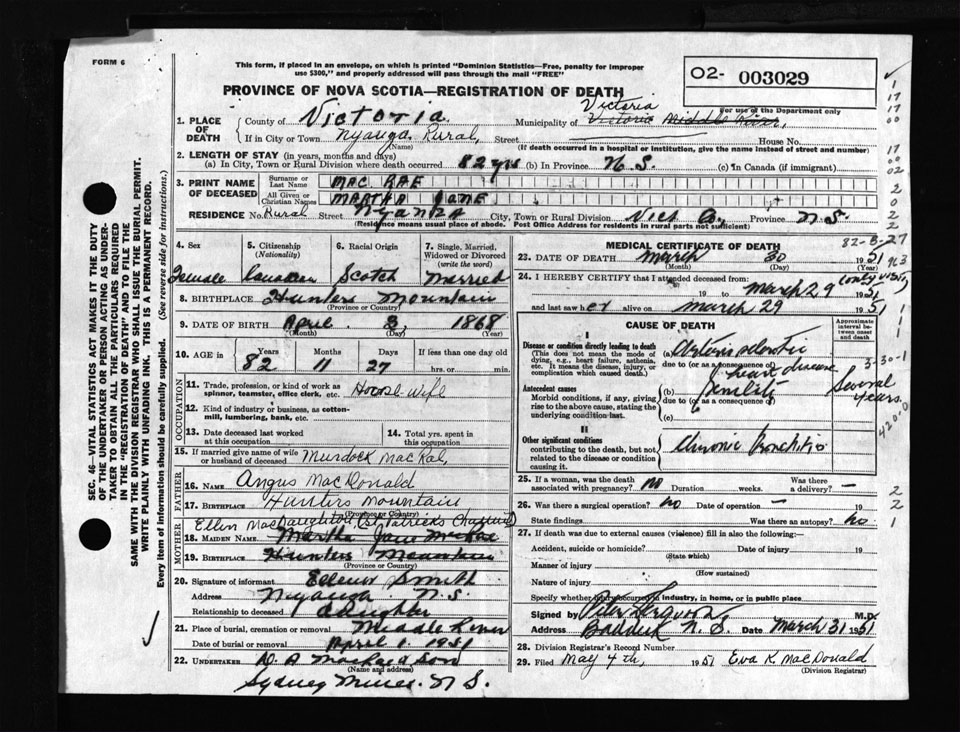 FORM 6
This form, if placed in an envelope, on which is printed "Dominion Statistics—Free, penalty for improper
use $300," and properly addressed will pass through the mail "FREE"
O2- 003029
PROVINCE OF NOVA SCOTIA—REGISTRATION OF DEATH
For use of the Department only
1. PLACE OF DEATH
County of Victoria Municipality of Victoria Victoria Middle River,
If in City or Town Nyanza Rural, Street House No.
(Name) (If death occurred in a hospital or institution, give the name instead of street and number)
2. LENGTH OF STAY (in years, months and days)
(a) In City, Town or Rural Division where death occurred 82 yrs (b) In Province N.S. (c) In Canada (if immigrant)
3. PRINT NAME OF DECEASED
Surname or Last Name MAC RAE
All Given or Christian Names MARTHA JANE
RESIDENCE No. Rural Street Nyanza City, Town or Rural Division Vict Co. Province N.S.
(Residence means usual place of abode. Post Office Address for residents in rural parts not sufficient)
4. Sex Female
5. Citizenship (Nationality) Canadian
6. Racial Origin Scotch
7. Single, Married, Widowed or Divorced (write the word) Married
8. BIRTHPLACE Hunters Mountain
(Province or Country)
9. DATE OF BIRTH April 3, 1868
(Month) (Day) (Year)
10. AGE in Years Months Days If less than one day old
82 11 27 hrs. or min.
OCCUPATION
11. Trade, profession, or kind of work as spinner, teamster, office clerk, etc. House-wife
12. Kind of industry or business, as cotton-mill, lumbering, bank, etc.
13. Date deceased last worked at this occupation
14. Total yrs. spent in this occupation
15. If married give name of wife or husband of deceased Murdock MacRae,
FATHER
16. Name Angus MacDonald
17. Birthplace Hunters Mountain
(Province or Country)
MOTHER
Ellen MacNaughton (St Patricks Channel)
18. MAIDEN NAME Martha Jane MacRae
19. BIRTHPLACE Hunters Mountain
(Province or Country)
20. Signature of informant Ellenor Smith
Address Nyanza N.S.
Relationship to deceased daughter
21. Place of burial, cremation or removal Middle River
Date of burial or removal April 1 1951
22. UNDERTAKER D. A MacRae & Son
(Name and address)
Sydney Mines N.S.
MEDICAL CERTIFICATE OF DEATH
82-8-27
23. DATE OF DEATH March 30 1951
(Month) (Day) (Year)
24. I HEREBY CERTIFY that I attended deceased from (only visit)
19 to March 29 1951
and last saw her alive on March 29 1951
CAUSE OF DEATH
Approximate interval between onset and death
I
Disease or condition directly leading to death
(This does not mean the mode of dying, e.g., heart failure, asthenia, etc. It means the disease, injury or complication which caused death.)
(a) Arteriosclerotic
due to (or as a consequence of) heart disease
Antecedent causes
Morbid conditions, if any, giving rise to the above cause, stating the underlying condition last.
(b) Senility
due to (or as a consequence of)
(c)
Several years.
3-30-1
4200.0
II
Other significant conditions contributing to the death, but not related to the disease or condition causing it.
Chronic bronchitis
25. If a woman, was the death associated with pregnancy? No Duration weeks. Was there a delivery? —
26. Was there a surgical operation? No Date of operation — 19
State findings Was there an autopsy? No
27. If death was due to external causes (violence) fill in also the following:—
Accident, suicide or homicide? Date of injury 19
(State which)
Manner of injury
(How sustained)
Nature of injury
Specify whether injury occurred in industry, in home, or in public place
Signed by M.D.
Address Baddeck N.S. Date March 31 1951
28. Division Registrar's Record Number
29. Filed May 4th, 1951 Eva K MacDonald
(Division Registrar)
SEC. 46—VITAL STATISTICS ACT MAKES IT THE DUTY
OF THE UNDERTAKER OR PERSON ACTING AS UNDER-
TAKER TO OBTAIN ALL THE PARTICULARS REQUIRED
IN THE "REGISTRATION OF DEATH" AND TO FILE THE
SAME WITH THE DIVISION REGISTRAR WHO SHALL ISSUE THE BURIAL PERMIT.
WRITE PLAINLY WITH UNFADING INK. THIS IS A PERMANENT RECORD.
Every item of information should be carefully supplied. (See reverse side for instructions.)